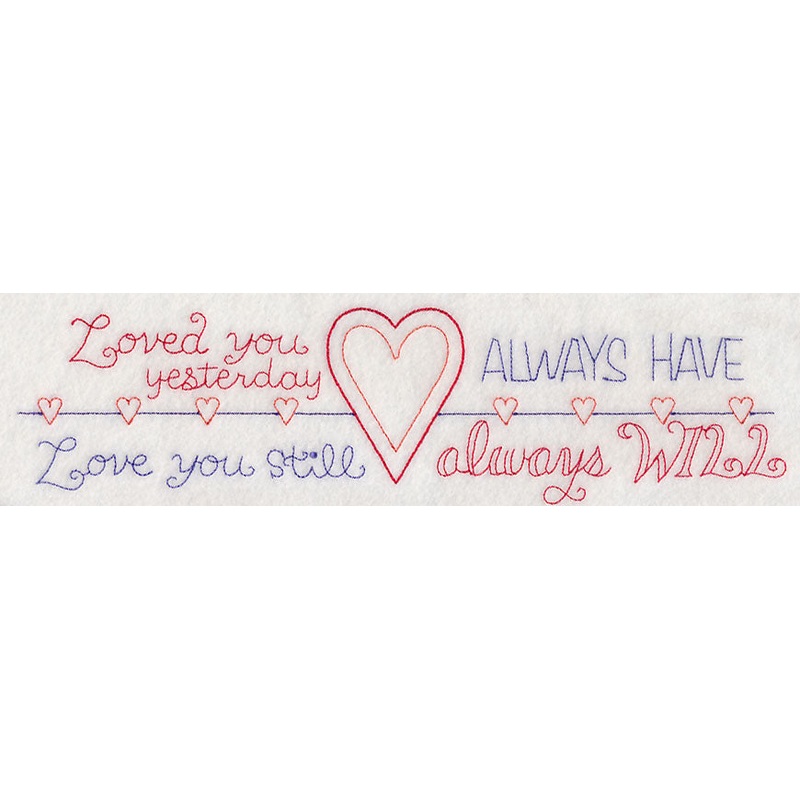 Loved you
yesterday
Love you still
ALWAYS HAVE
always WILL